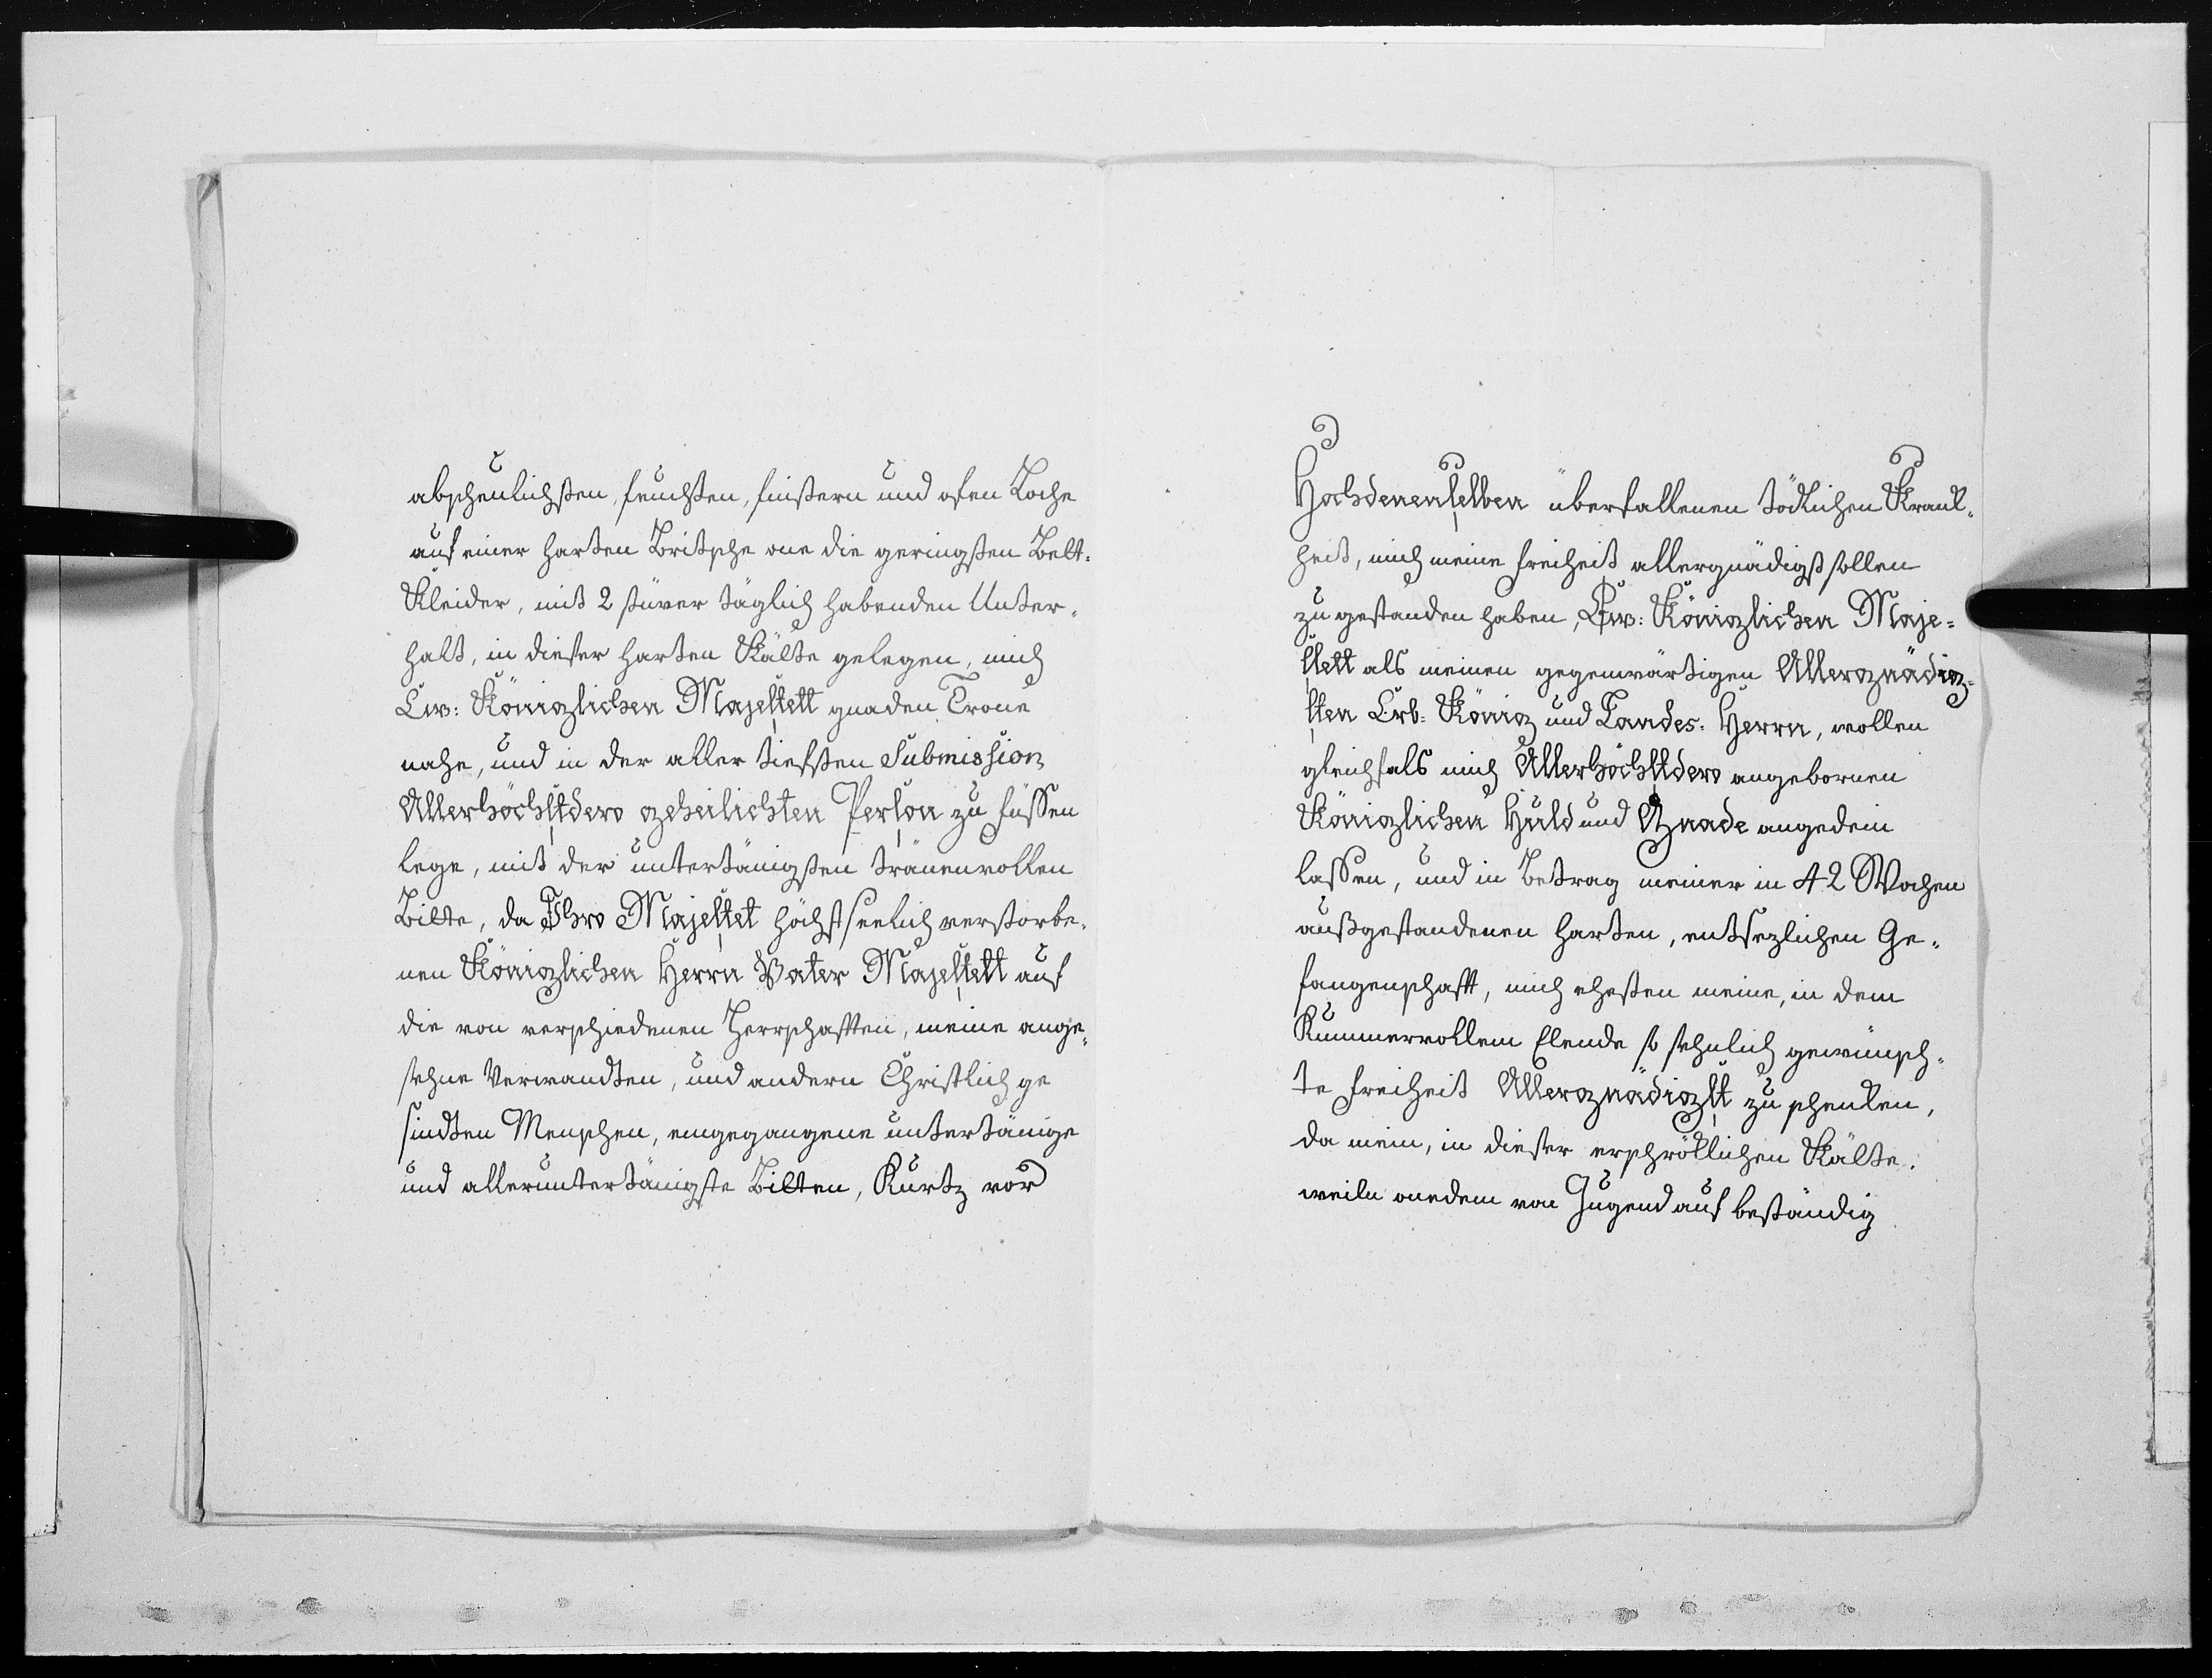 abscheulichsten, feuchsten, finstern und ofen Loche
auf einer harten Britsche one die geringsten Bett-
Kleider, mit 2 stüver täglich habenden Unter-
halt, in dieser harten Kälte gelegen, mich
Ew: Königlichen Majestett gnaden Trone
nahe, und in der aller tiefsten Submission
Allerhöchstdero geheilichten Person zu füssen
lege, mit der untertänigsten tränenvollen
Bitte, da Ihro Majestet höchstseelich verstorbe-
nen Königlichen Herrn Vater Majestett auf
die von verschiedenen Herrschafften, meine ange-
sehne Verwandten, und andern Christlich ge
sindten Menschen, eingegangene untertänige
und alleruntertänigste Bitten, Kurtz vor
Hochdenenselben überfallenen tödlichen Krank-
heit, mich meine freiheit allergnädigst sollen
zu gestanden haben, Ew: Königlichen Maje-
stett als meinen gegenwärtigen Allergnädig-
sten Erb-König und Landes-Herrn, wollen
gleichfals mich Allerhöchstdero angebornen
Königlichen Huld und Gnade angedein
lassen, und in Betrag meiner in 42 Wochen
außgestandenen harten, entsezlichen Ge-
fangenschafft, mich ehesten meine, in dem
Kummervollem Elende so sehnlich gewünsch-
te freiheit Allergnädigst zu schenken,
da mein, in dieser erschröklichen Kälte.
weiln onedem von Jugend auf beständig